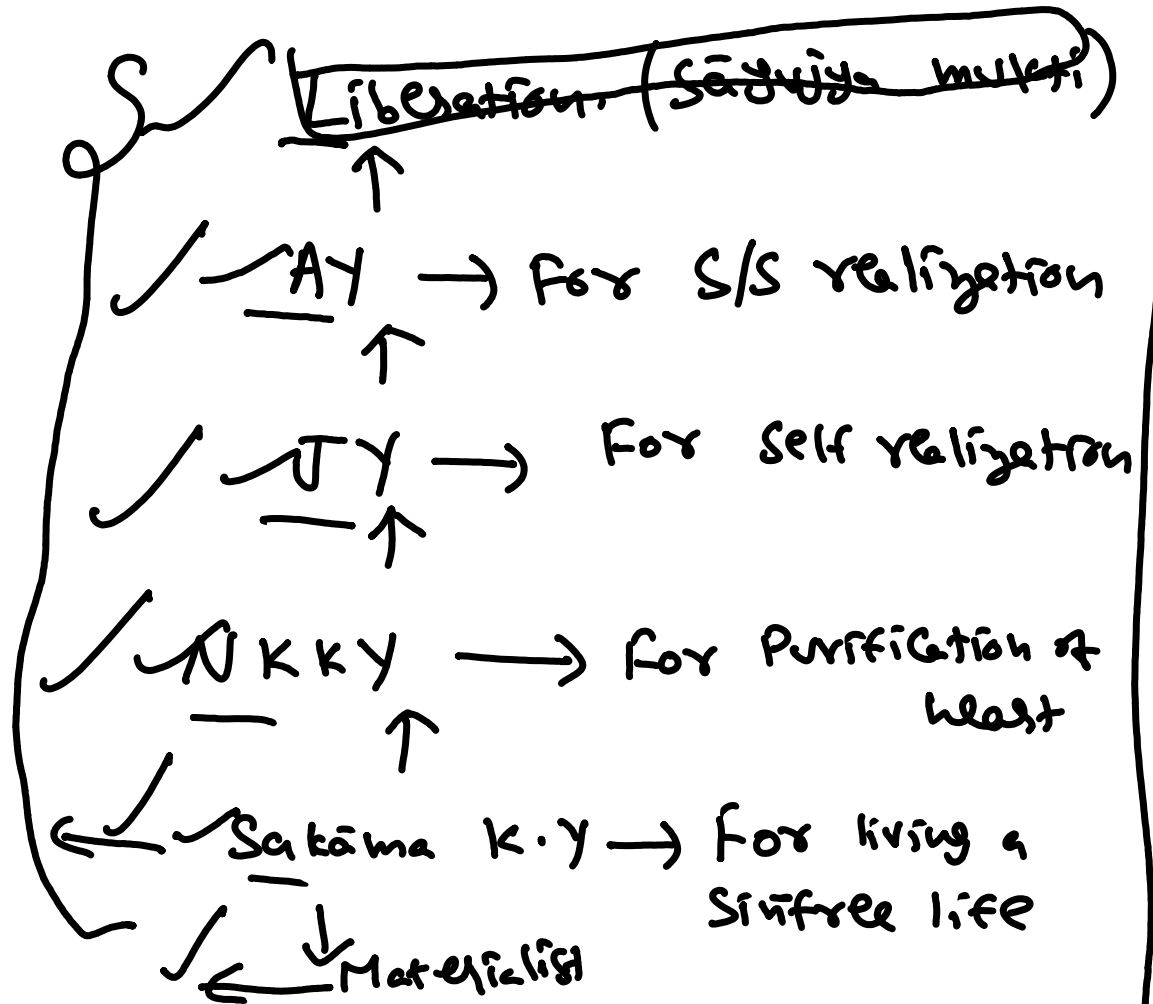 Liberation. (Sāyujya mukti)
AY → For S/S realization
JY → For Self realization
NKKY → For Purification of
heart
Sakāma K.Y → For living a
Sinfree life
Materialist